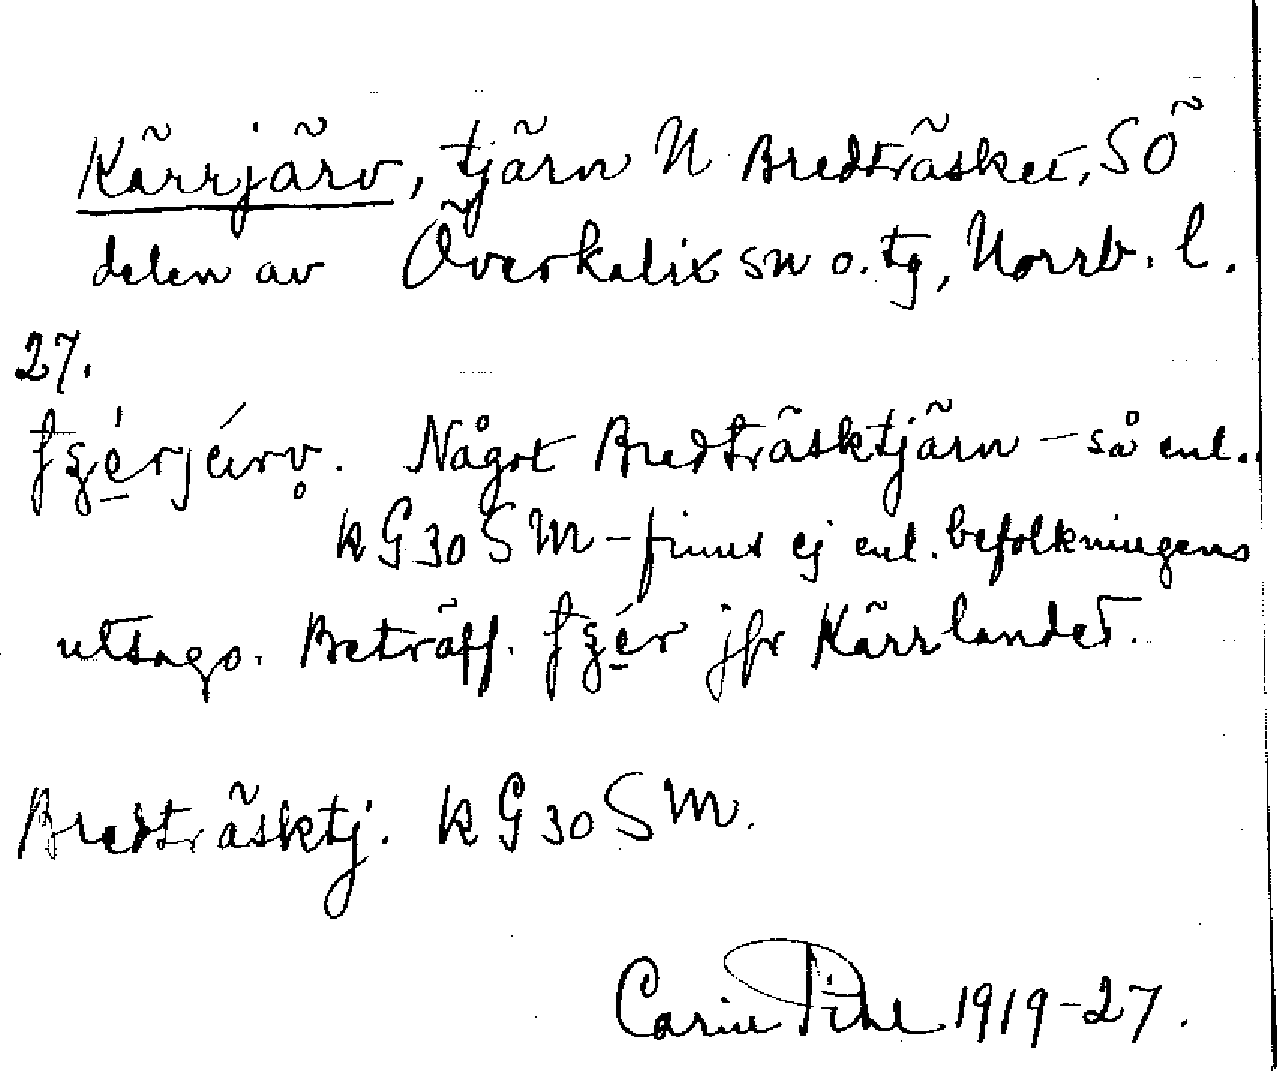 Kärrjärv, tjärn N Bredträsket, SÖ
delen av Överkalix sn o. tg, Norrb. l.
27.
Något Bredträsktjärn – så enl.
kG30SM – finns ej enl. befolkningens
utsago. Beträff. jfr Kärrlandet.
Bredträsktj. kG30SM.
Carin Pihl 1919-27.